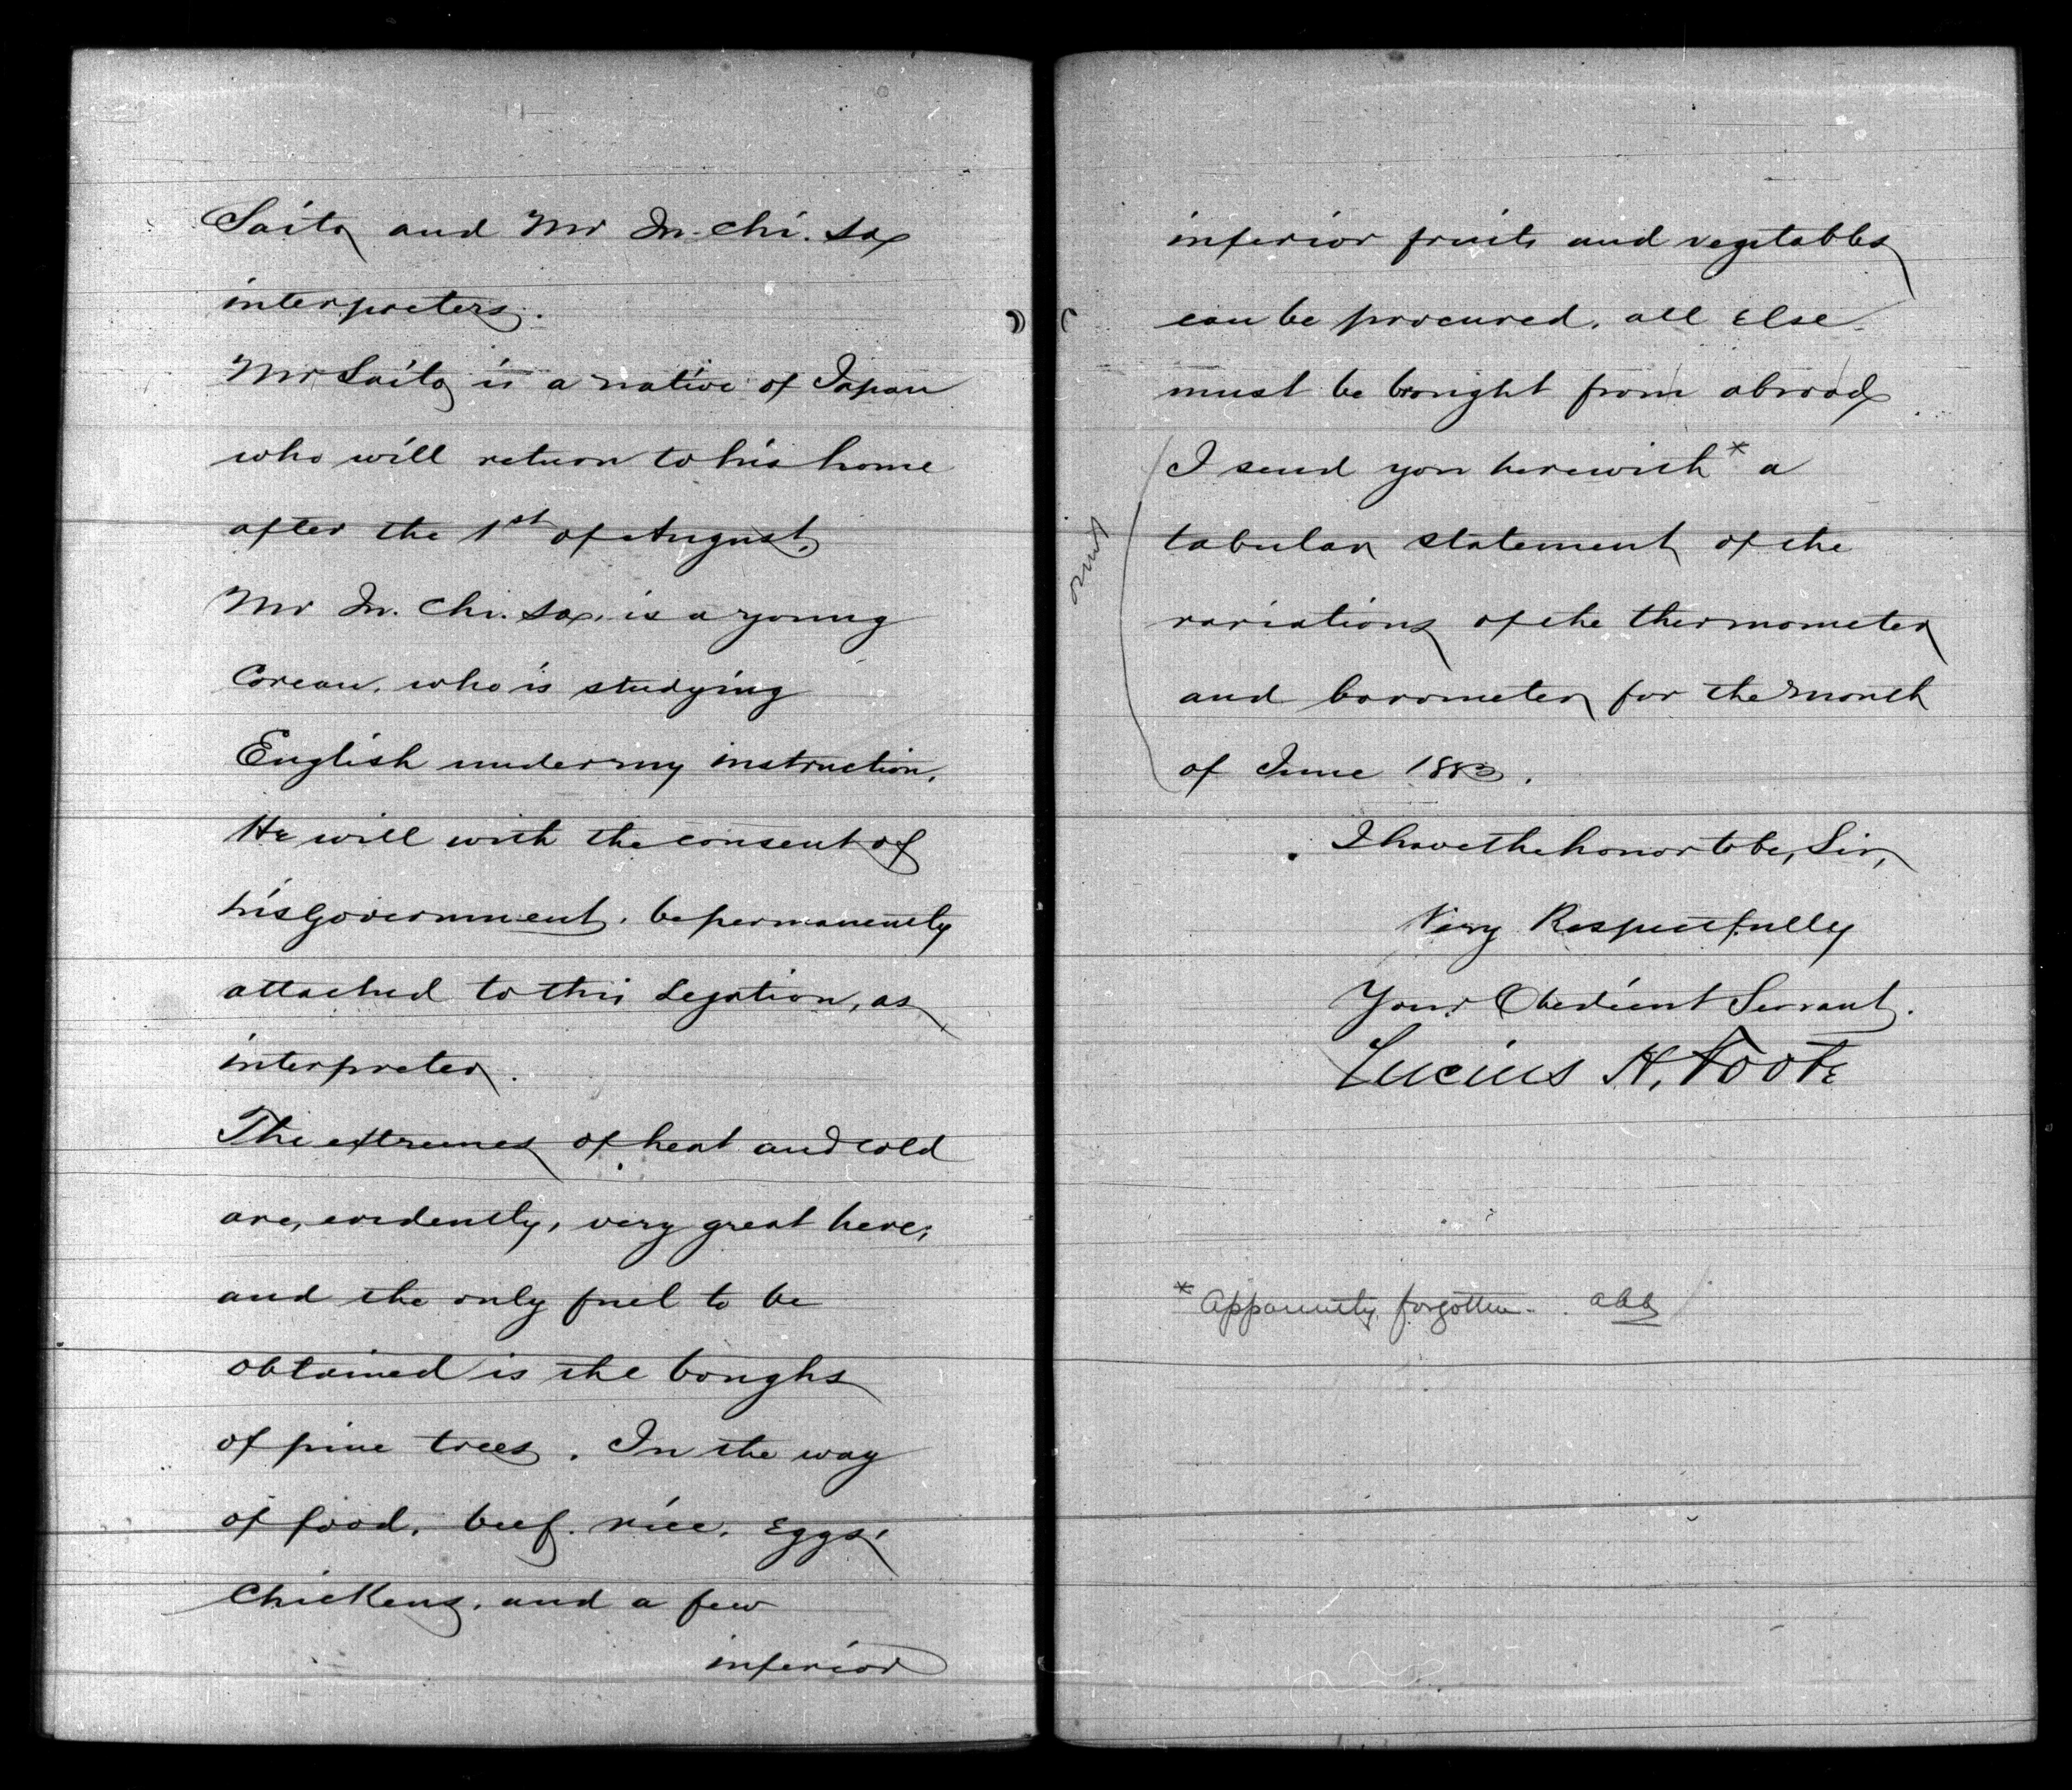 Saito and Mr In. Chi. So,
interpreters.
Mr Saito is a native of Japan
who will return to his home
after the 1st of August.
Mr In. Chi. So, is a young
Corean, who is studying
English under my instruction.
He will with the consent of
his Government, be permanently
attached to this Legation, as
interpreter.
The extremes of heat and cold
are, evidently, very great here;
and the only fuel to be
obtained is the boughs
of pine trees. In the way
of food, beef, rice, Eggs,
Chickens, and a few
inferior
inferior fruits and vegetables
can be procured, all Else
must be brought from abroad.
I send you herewith* a
tabular statement of the
variations of the thermometer
and barometer for the month
of June 1883.
omit
I have the honor to be, Sir,
Very Respectfully
Your Obedient Servant.
Lucius H. Foote
* Apparently forgotten.